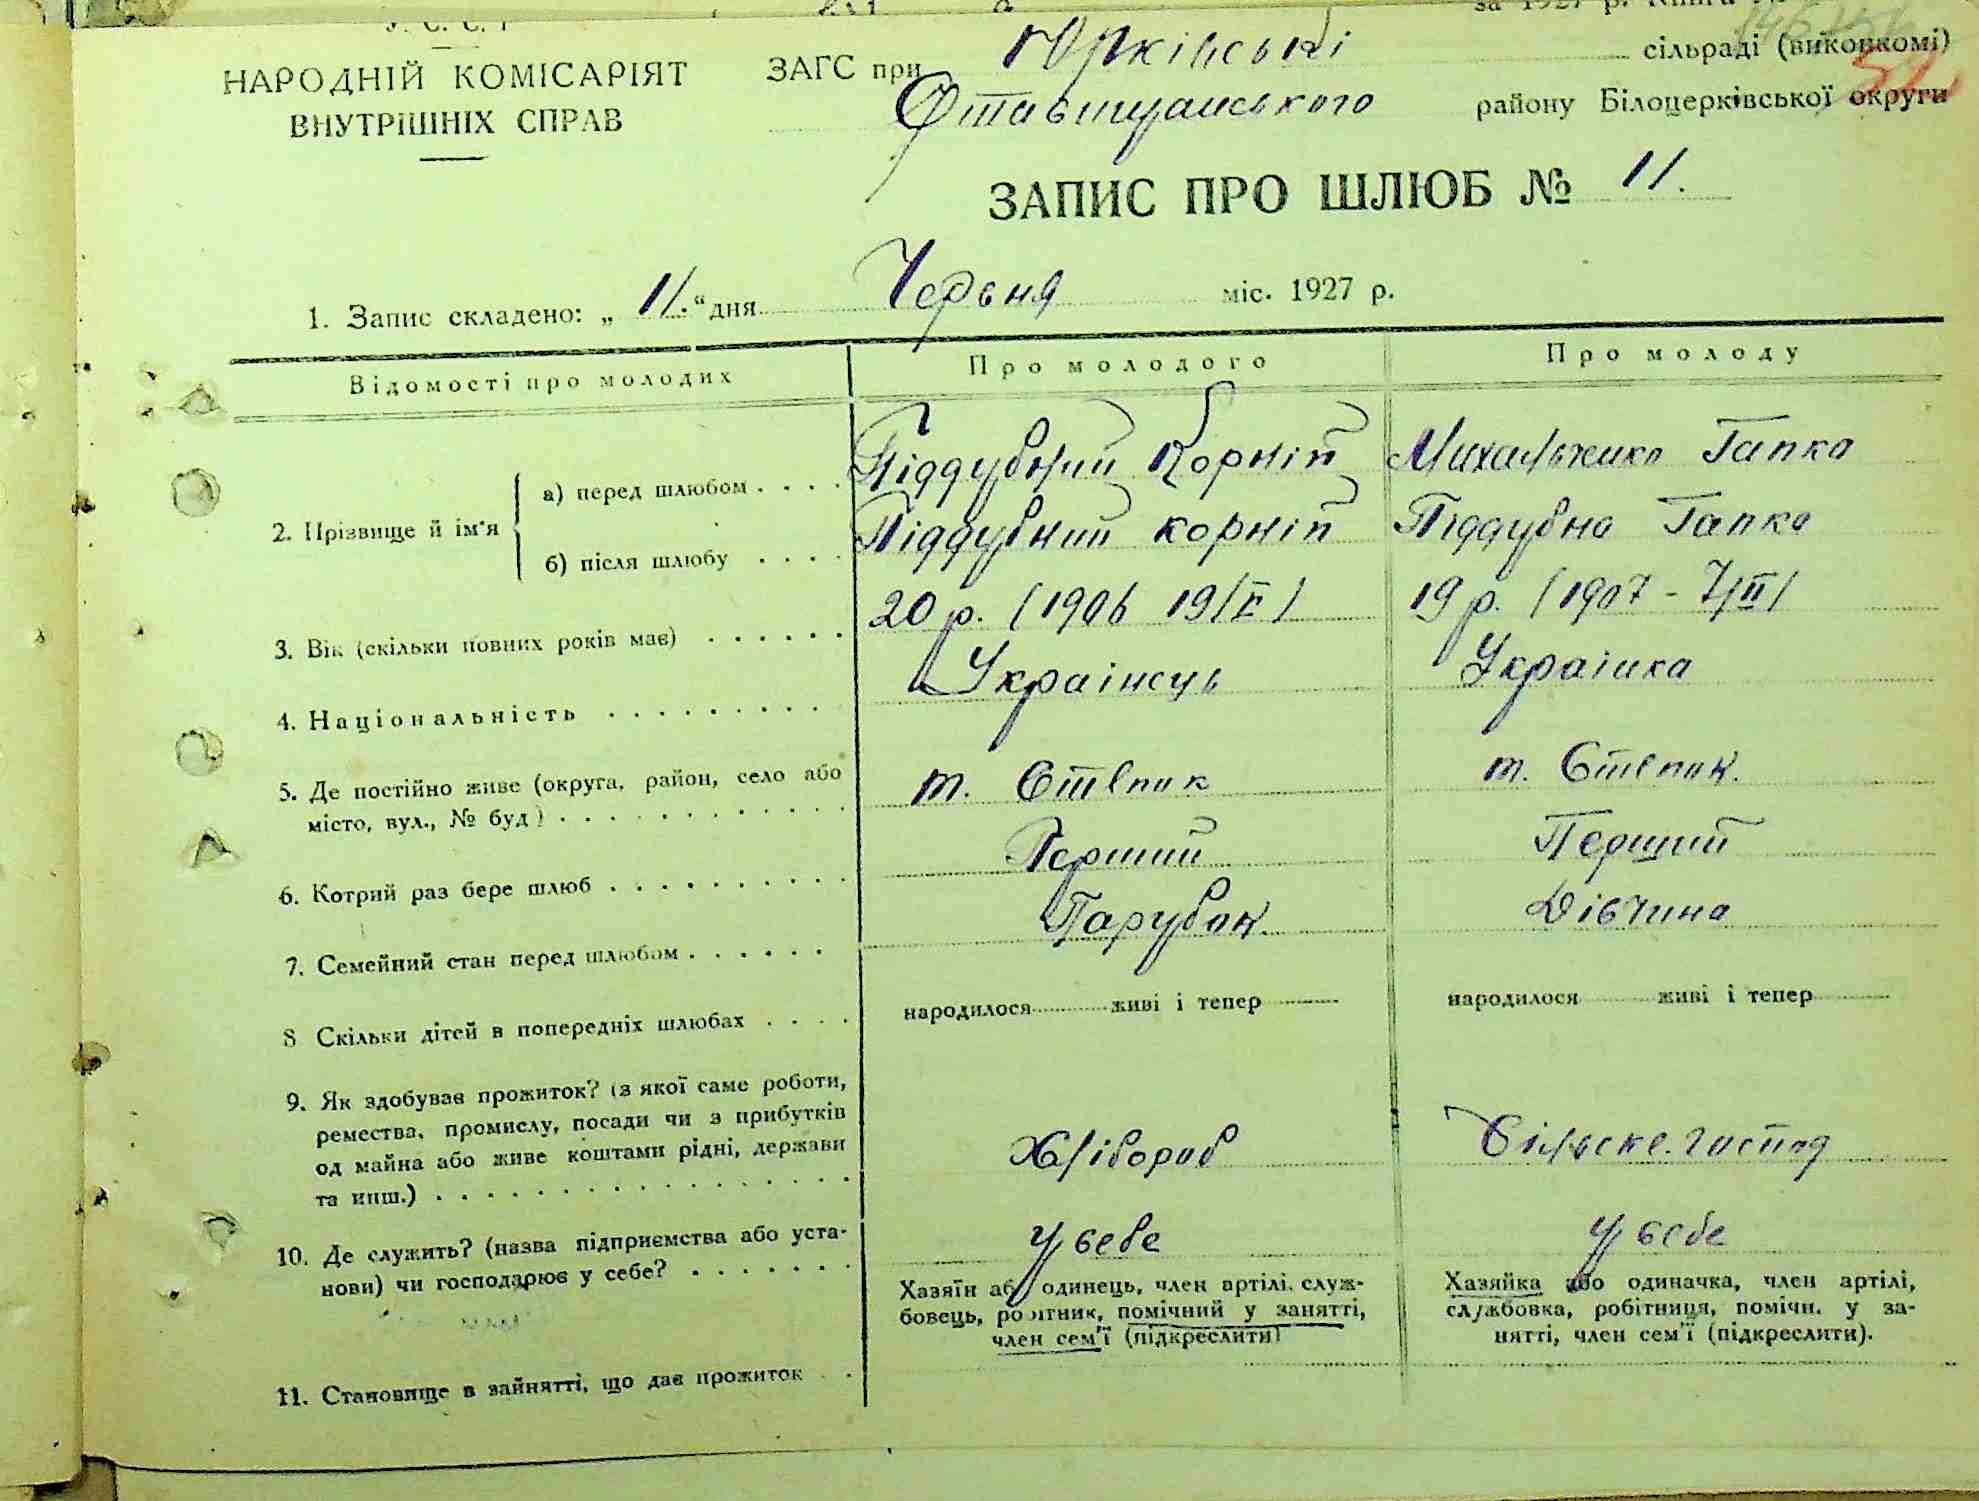 У. С. С. Р.
за 1927 р. Книга
НАРОДНІЙ КОМІСАРІЯТ
ВНУТРІШНІХ СПРАВ
ЗАГС при Юрківські сільраді (виконкомі)
Ставищанського району Білоцерківської округи
52
ЗАПИС ПРО ШЛЮБ № 11.
1. Запис складено: „ 11. “ дня Червня міс. 1927 р.
Відомості про молодих Про молодого Про молоду
2. Прізвище й ім'я
а) перед шлюбом . . . . Піддубний Корній Михальченко Гапка
б) після шлюбу . . . . Піддубний корній Піддубна Гапка
3. Вік (скільки повних років має) . . . . . . 20 р. (1906 19/X) 19 р. (1907 - 7/II)
4. Національність . . . . . . . . . Українець Украінка
5. Де постійно живе (округа, район, село або
місто, вул., № буд) . . . . . . . . . . . . т. Степок т. Степок.
6. Котрий раз бере шлюб . . . . . . . . . . Перший Перший
7. Семейний стан перед шлюбом . . . . . . Парубок. Дівчина
8 Скільки дітей в попередніх шлюбах . . . . народилося живі і тепер народилося живі і тепер
9. Як здобуває прожиток? (з якої саме роботи,
ремества, промислу, посади чи з прибутків
од майна або живе коштами рідні, держави
та инш.) . . . . . . . . . . . . . . . . Хлібороб Сільске. господ
10. Де служить? (назва підприємства або уста-
нови) чи господарює у себе? . . . . . . . У себе У себе
Хазяїн або одинець, член артілі. служ-
бовець, робітник, помічний у занятті,
член сем'ї (підкреслити)
Хазяйка або одиначка, член артілі,
службовка, робітниця, помічн. у за-
нятті, член сем'ї (підкреслити).
11. Становище в зайнятті, що дає прожиток . .